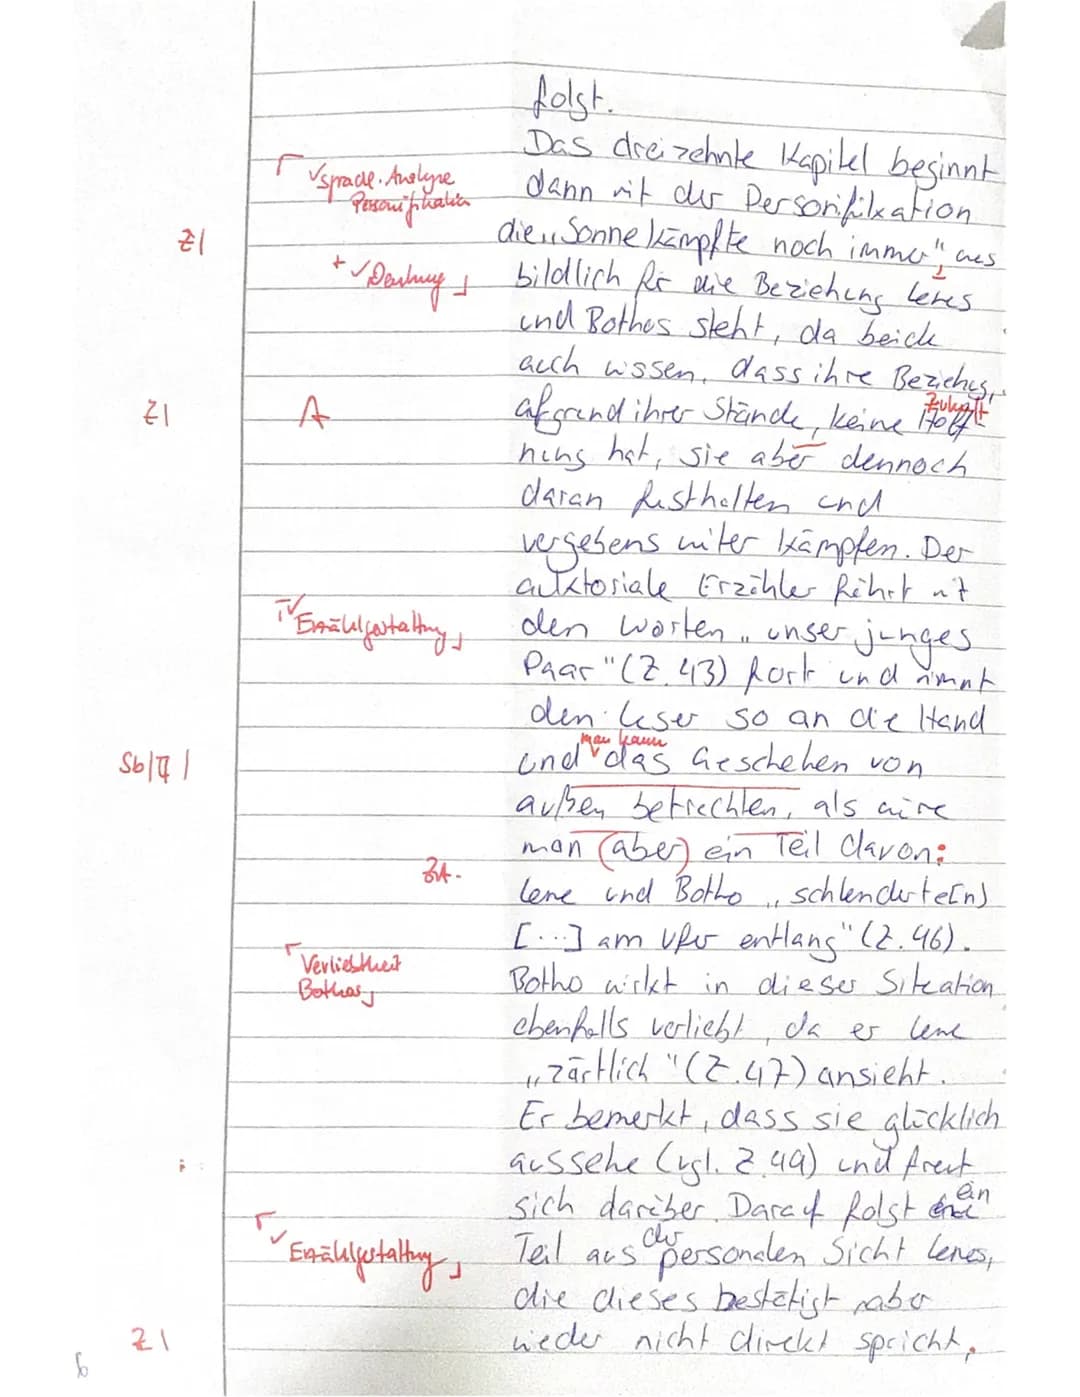 folgt.
Das dreizehnte Kapitel beginnt
┌ √ sprachl. Analyse
Personifikation
dann mit der Personifikation
Z|
die „Sonne kämpfte noch immer", was
+ √ Deutung ┘
bildlich für die Beziehung Lenes
und Bothos steht, da beide
auch wissen, dass ihre Beziehung,
Z|
A
aufgrund ihrer Stände, keine Hoff
Zukunft
nung hat, sie aber dennoch
daran festhalten und
vergebens weiter kämpfen. Der
auktoriale Erzähler führt mit
┌ √ Erzählgestaltung ┘
den Worten „unser junges
Paar" (Z. 43) fort und nimmt
den Leser so an die Hand
Sb/ |
und das Geschehen von
man kann
außen betrachten, als wäre
man (aber) ein Teil davon:
ZA.
Lene und Botho „schlenderte[n]
[...] am Ufer entlang" (Z. 46).
┌ Verliebtheit
Bothos ┘
Botho wirkt in dieser Situation
ebenfalls verliebt, da er Lene
„zärtlich" (Z. 47) ansieht.
Er bemerkt, dass sie glücklich
aussehe (vgl. Z. 49) und freut
sich darüber. Darauf folgt ein
Teil aus der personalen Sicht Lenes,
┌ √ Erzählgestaltung ┘
die dieses bestätigt, aber
Z|
wieder nicht direkt spricht,
6